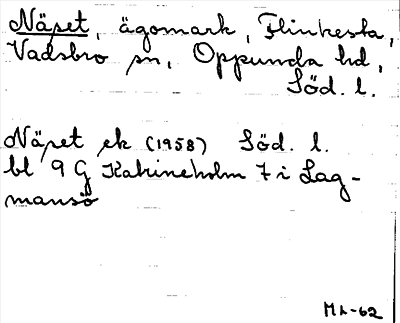 Näset, ägomark, Flinkesta,
Vadsbro sn, Oppunda hd,
Söd. l.
Näset ek (1958) Söd. l.
bl 9 G Katrineholm 7 i Lag-
mansö
ML-62